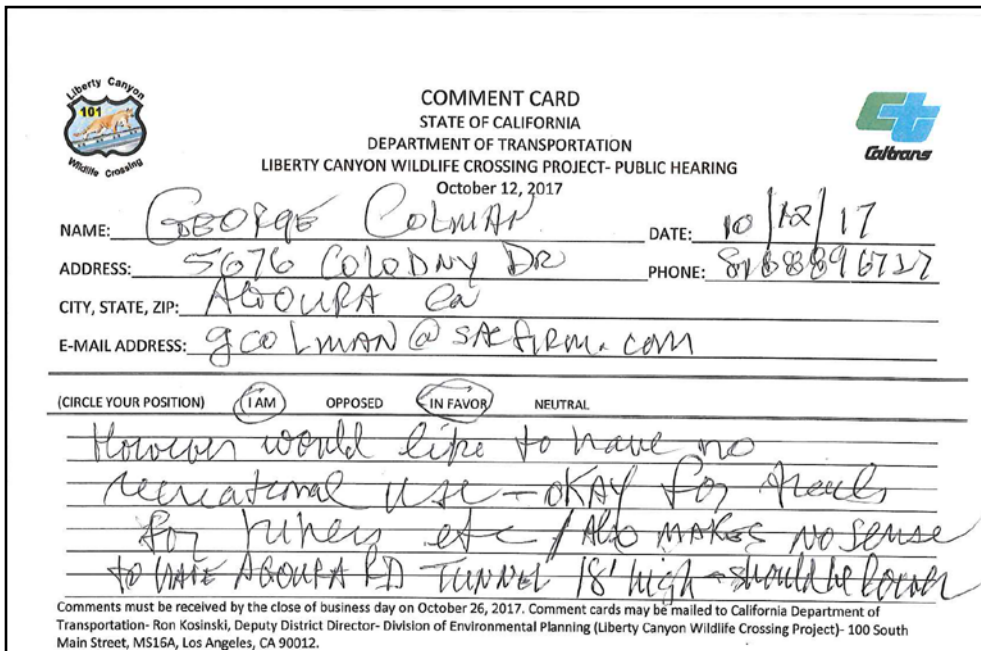 Liberty Canyon
101
Wildlife Crossing
COMMENT CARD
STATE OF CALIFORNIA
DEPARTMENT OF TRANSPORTATION
LIBERTY CANYON WILDLIFE CROSSING PROJECT- PUBLIC HEARING
October 12, 2017
ct
Caltrans
NAME: GEORGE COLMAN DATE: 10/12/17
ADDRESS: 5676 COLODNY DR PHONE: 8188896727
CITY, STATE, ZIP: AGOURA Ca
E-MAIL ADDRESS: gcolman@sacfirm.com
(CIRCLE YOUR POSITION) I AM OPPOSED IN FAVOR NEUTRAL
However would like to have no
recreational use - OKAY for
for hikers etc / Also MAKES NO SENSE
TO HAVE AGOURA RD TUNNEL 18' high - should be lower
Comments must be received by the close of business day on October 26, 2017. Comment cards may be mailed to California Department of
Transportation- Ron Kosinski, Deputy District Director- Division of Environmental Planning (Liberty Canyon Wildlife Crossing Project)- 100 South
Main Street, MS16A, Los Angeles, CA 90012.